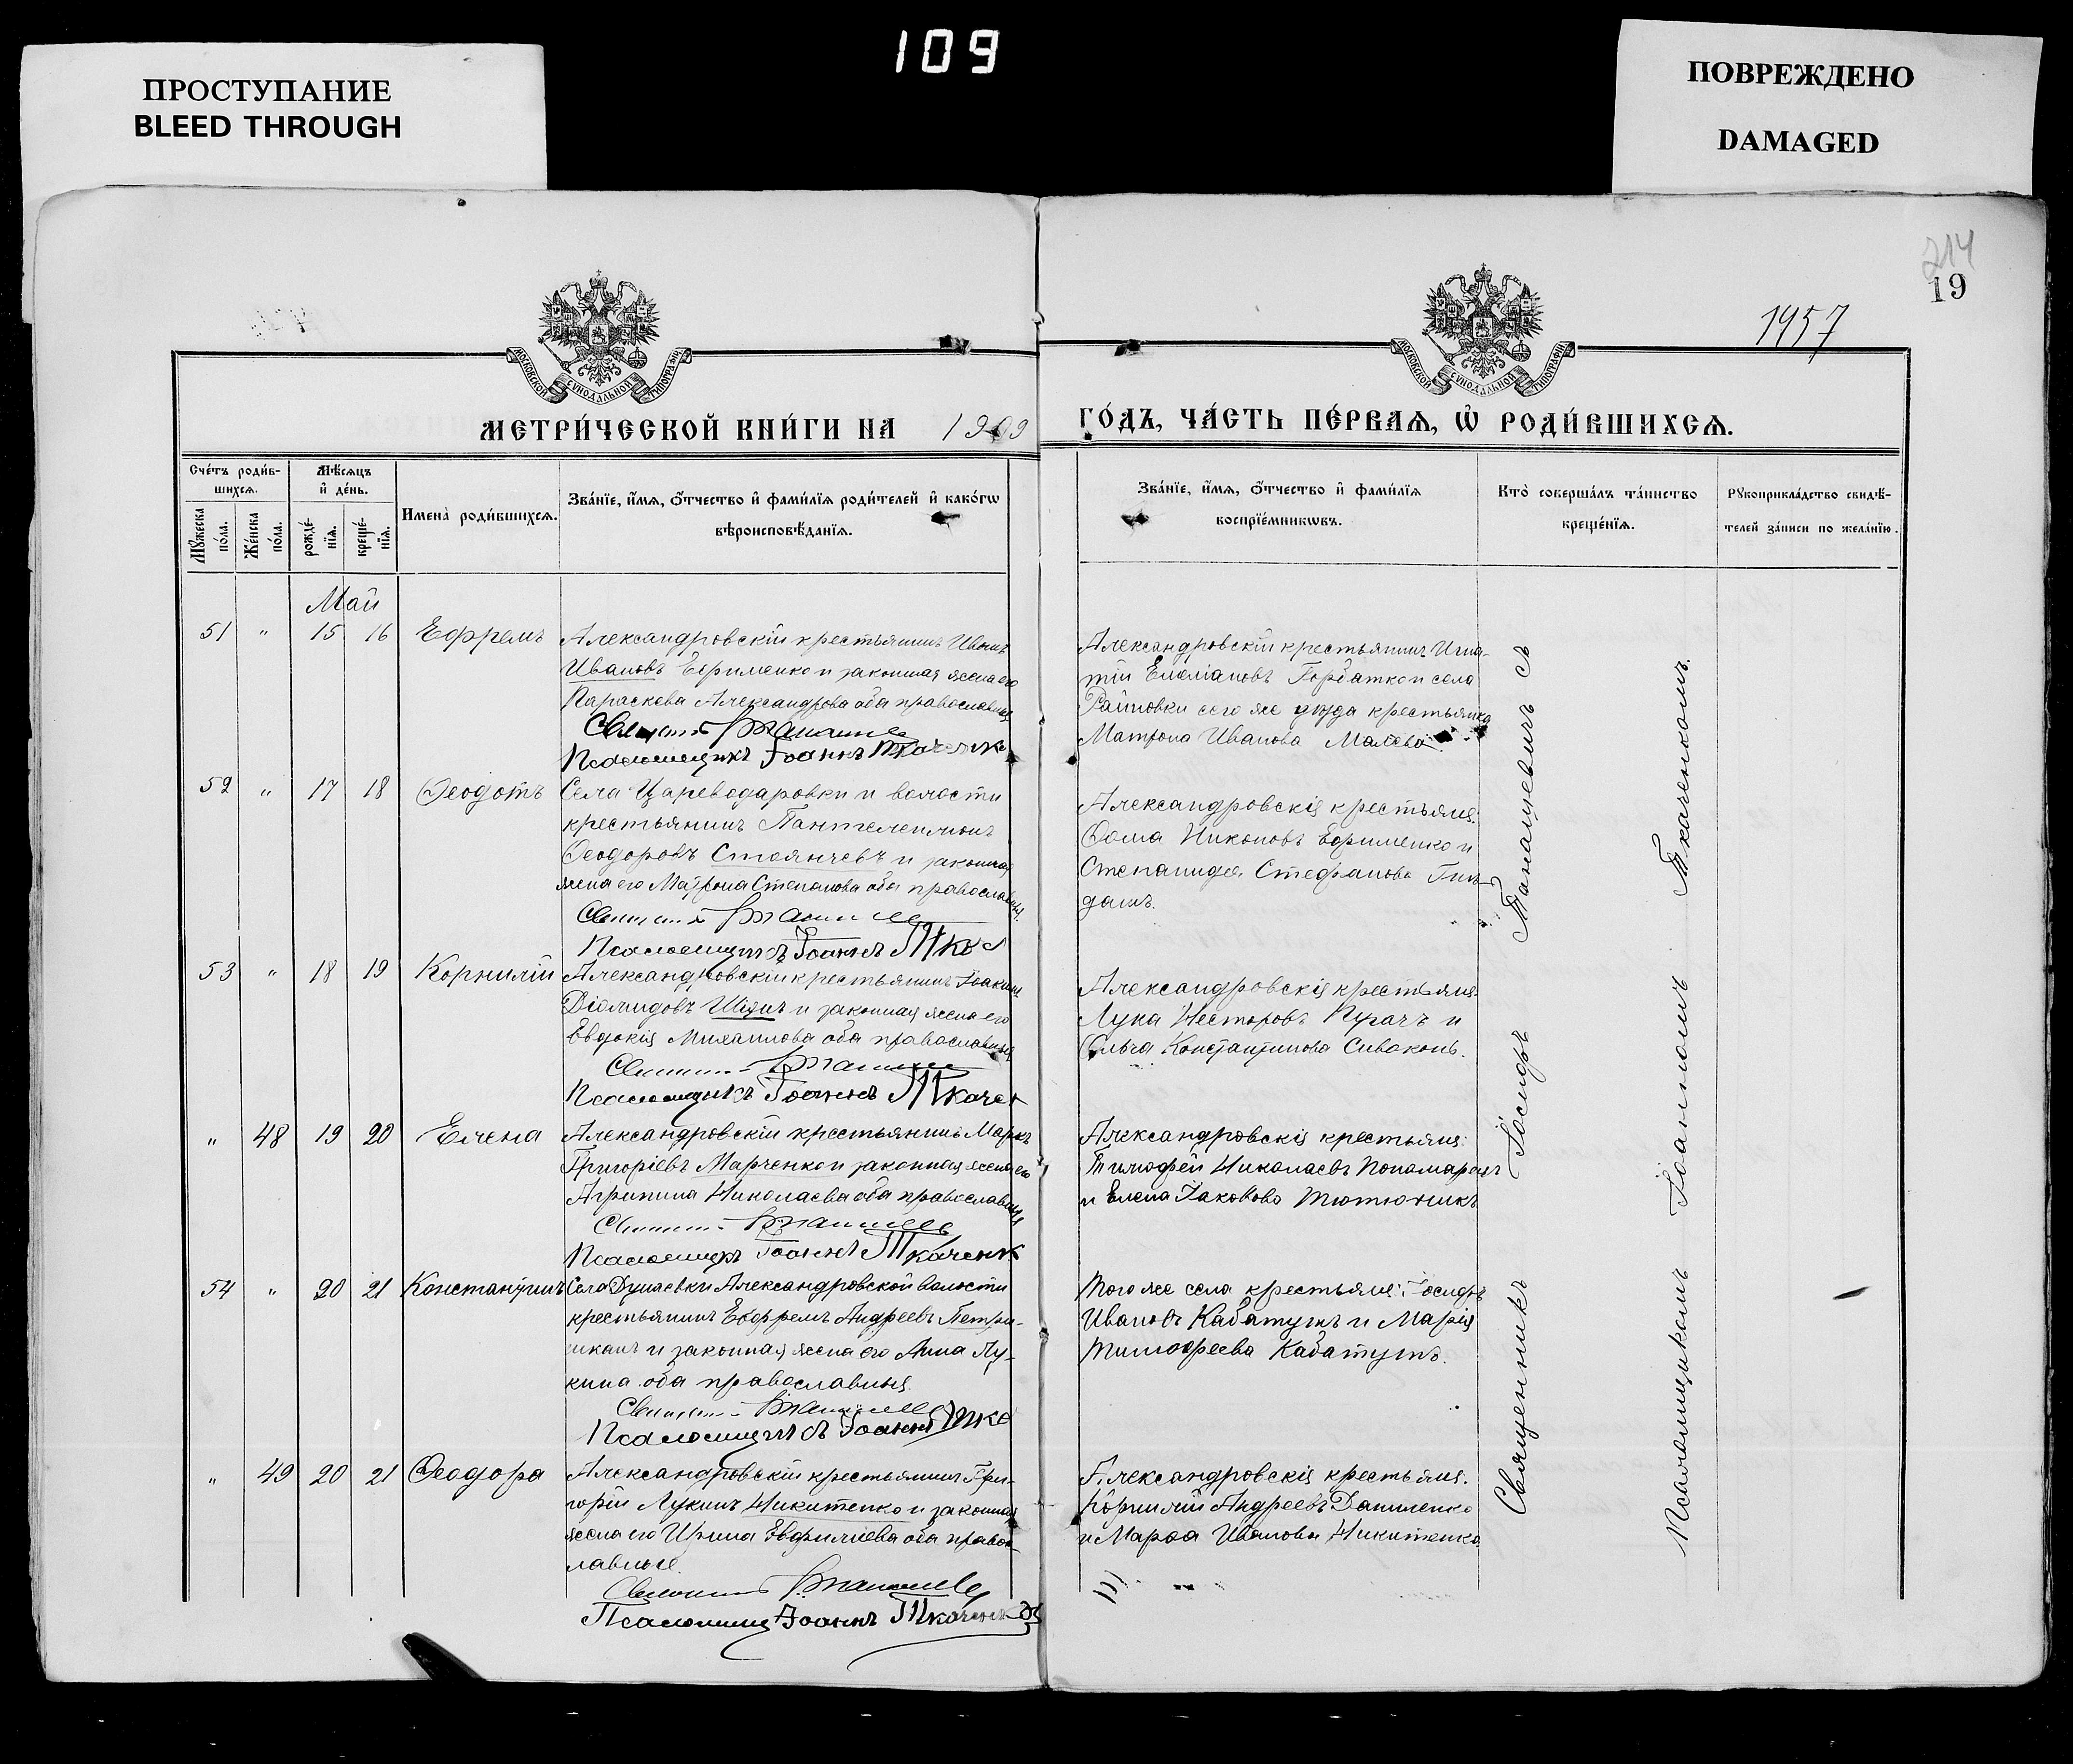 109
ПРОСТУПАНИЕ
BLEED THROUGH
ПОВРЕЖДЕНО
DAMAGED
214
19
1957
МОСКОВСКОЙ СѴНОДАЛЬНОЙ ТИПОГРАФІИ
МОСКОВСКОЙ СѴНОДАЛЬНОЙ ТИПОГРАФІИ
МЕТРИ́ЧЕСКОЙ КНИ́ГИ НА 1909
ГО́ДЪ, ЧА́СТЬ ПЕ́РВАѦ, Ѡ҆ РОДИ́ВШИХСѦ.
Сче́тъ роди́в-
шихсѧ.
Мꙋ́жеска по́ла.
Же́нска по́ла.
Мѣ́сѧцъ
и҆ де́нь.
рожде́-
нїѧ.
креще́-
нїѧ.
Имена̀ роди́вшихсѧ.
Зва́нїе, и҆́мѧ, ѻ҆́тчество и҆ фами́лїѧ роди́телей и҆ како́гѡ
вѣроисповѣ́данїѧ.
Зва́нїе, и҆́мѧ, ѻ҆́тчество и҆ фами́лїѧ
воспрїе́мникѡвъ.
Кто̀ соверша́лъ та́инство
креще́нїѧ.
Рꙋкоприкла́дство свидѣ́-
телей за́писи по жела́нїю.
Май
51 " 15 16 Ефремъ
Александровскій крестьянинъ Иванъ
Ивановъ Ефрименко и законная жена его
Параскева Александрова оба православныя
Псаломщикъ Іоаннъ Ткаченко
Александровскій крестьянинъ Игна-
тій Емеліановъ Горбатко и села
Райновки сего же уезда крестьянка
Матрона Иванова
52 " 17 18 Ѳеодотъ
Села Цареводаровки и волости
крестьянинъ Пантелеимонъ
Ѳеодоровъ Стоянчевъ и законная
жена его Матрона Степанова оба православныя.
Псаломщикъ Іоаннъ Тк
Александровскія крестьяне:
Ѳома Никоновъ Ефрименко и
Степанида Стефанова Гин-
дашъ.
53 " 18 19 Корнилій
Александровскій крестьянинъ Іоакимъ
Діомидовъ и законная жена его
Евдокія Михаилова оба православныя
Псаломщикъ Іоаннъ Ткачен
Александровскія крестьяне:
Лука Несторовъ Пугачъ и
Ольга Константинова Сивоконь.
" 48 19 20 Елена
Александровскій крестьянинъ Маркъ
Григоріевъ Марченко и законная жена его
Агрипина Николаева оба православныя
Псаломщикъ Іоаннъ Ткаченко
Александровскія крестьяне:
Тимофей Николаевъ Пономарецъ
и Елена Іаковова Тютюникъ
54 " 20 21 Константинъ
Села Дунаевки Александровской волости
крестьянинъ Ефремъ Андреевъ Петри-
шканъ и законная жена его Анна Лу-
кина оба православныя.
Псаломщикъ Іоаннъ Тка
Того же села крестьяне: Іосифъ
Ивановъ Кабатунъ и Марія
Тимофеева Кабатунъ.
" 49 20 21 Ѳеодора
Александровскій крестьянинъ Гри-
горій Лукинъ Никитенко и законная
жена его Ирина Евфиміева оба правос-
лавные.
Псаломщикъ Іоаннъ Ткаченко
Александровскія крестьяне:
Корнилій Андреевъ Даниленко
и Марѳа Иванова Никитенко.
Священникъ Іосифъ Танащевичъ съ
Псаломщикомъ Іоанномъ Ткаченкомъ.